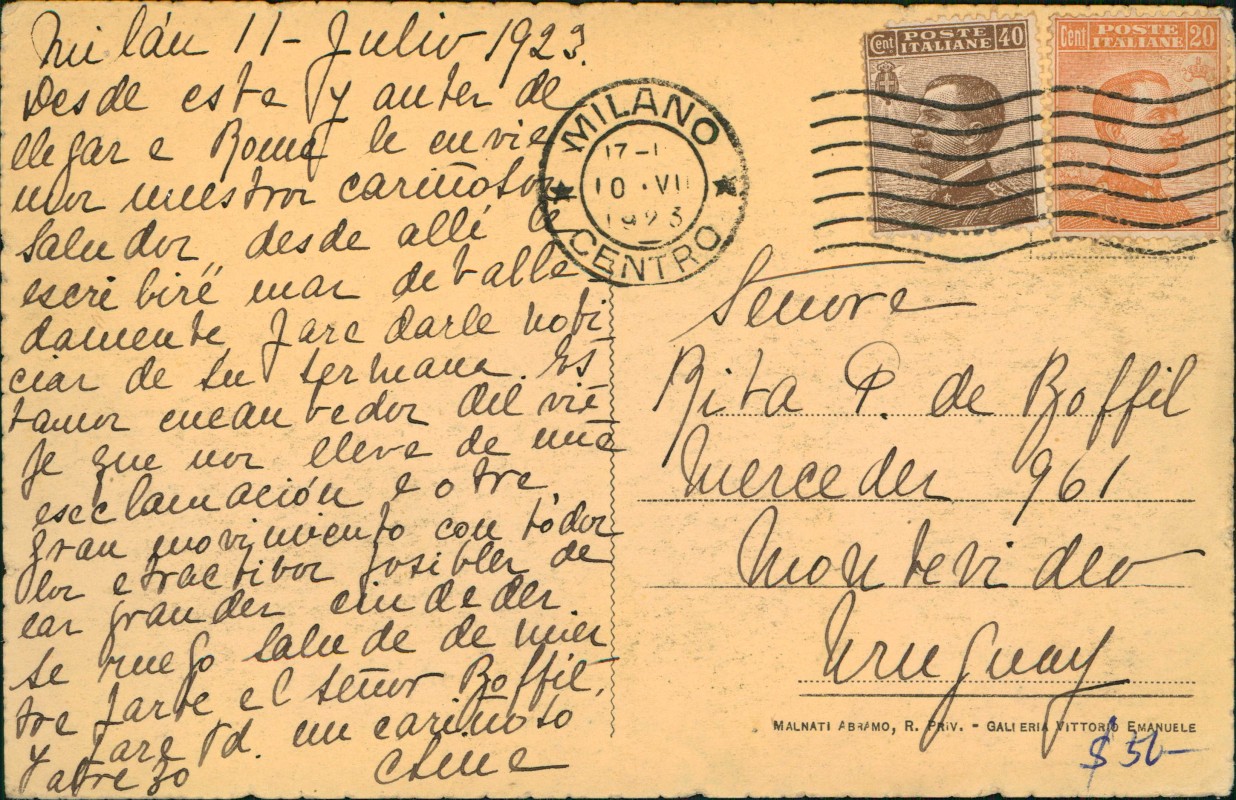 Milán 11 - Julio 1923.
Desde esta y antes de
llegar a Roma le envia
mos nuestros cariñosos
saludos desde allí le
escribiré mas detalla
damente para darle noti
cias de su hermana. Es
tamos encantados del via
je que nos lleva de una
esclamación a otra,
gran movimiento con todos
los atractivos posibles de
las grandes ciudades.
Le ruego salude de nues
tra parte al señor Boffil,
y para Vd. un cariñoso
abrazo
MILANO
CENTRO
17-1
10 · VII
1923
Cent POSTE ITALIANE 40
Cent POSTE ITALIANE 20
Señora
Rita P. de Boffil
Mercedes 961
Montevideo
Uruguay
MALNATI ABRAMO, R. PRIV. - GALLERIA VITTORIO EMANUELE
$ 50-